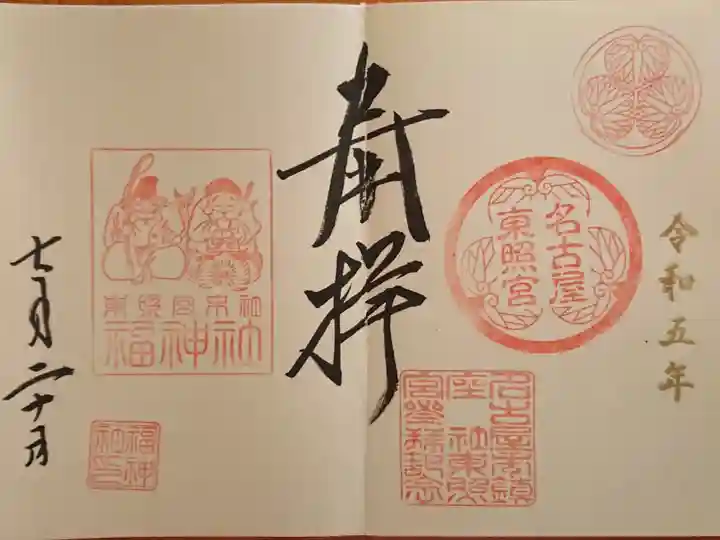 令和五年
名古屋
東照宮
奉拝
東照宮末社
福神社
七月二十日
福神
社印